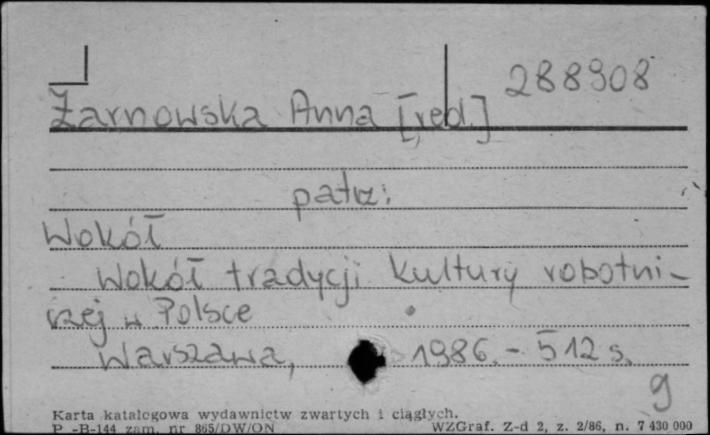 288908
Żarnowska Anna [red.]
patrz:
Wokół
Wokół tradycji kultury robotni-
czej w Polsce
Warszawa, 1986. - 512 s.
g
Karta katalogowa wydawnictw zwartych i ciągłych.
P -B-144 zam. nr 865/DW/ON WZGraf. Z-d 2, z. 2/86, n. 7 430 000